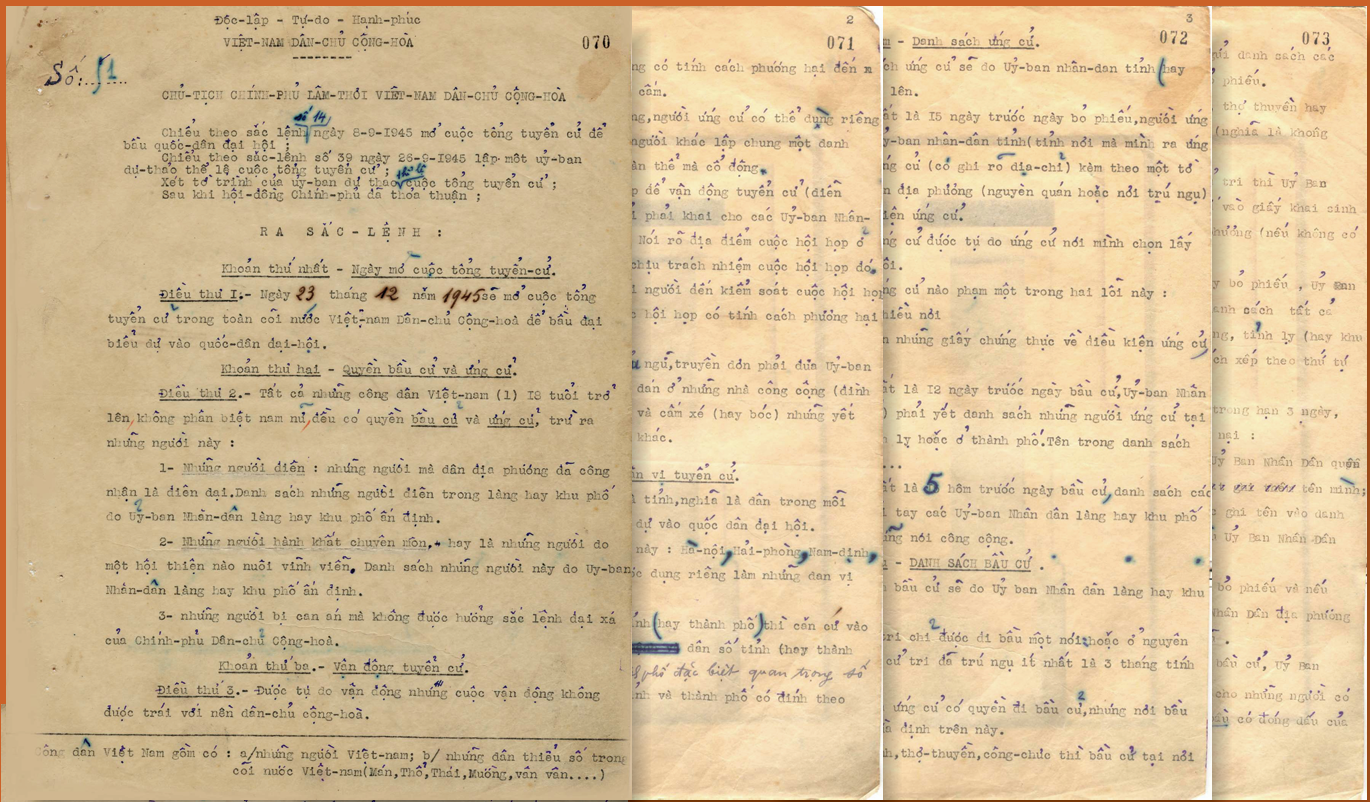 Độc-lập - Tự-do - Hạnh-phúc
VIỆT-NAM DÂN-CHỦ CỘNG-HOÀ
070
Số:...51
CHỦ-TỊCH CHÍNH-PHỦ LÂM-THỜI VIỆT-NAM DÂN-CHỦ CỘNG-HOÀ
số 14
Chiểu theo sắc lệnh ngày 8-9-1945 mở cuộc tổng tuyển cử để
bầu quốc-dân đại hội ;
Chiểu theo sắc-lệnh số 39 ngày 26-9-1945 lập một uỷ-ban
dự-thảo thể lệ cuộc tổng tuyển cử ;
thể lệ
Xét tờ trình của uỷ-ban dự thảo cuộc tổng tuyển cử ;
Sau khi hội-đồng Chính-phủ đã thỏa thuận ;
RA SẮC-LỆNH :
Khoản thứ nhất - Ngày mở cuộc tổng tuyển-cử.
Điều thứ I.- Ngày 23 tháng 12 năm 1945 sẽ mở cuộc tổng
tuyển cử trong toàn cõi nước Việt-nam Dân-chủ Cộng-hoà để bầu đại
biểu dự vào quốc-dân đại-hội.
Khoản thứ hai - Quyền bầu cử và ứng cử.
Điều thứ 2.- Tất cả những công dân Việt-nam (1) I8 tuổi trở
lên, không phân biệt nam nữ, đều có quyền bầu cử và ứng cử, trừ ra
những người này :
1- Những người điên : những người mà dân địa phương đã công
nhận là điên dại. Danh sách những người điên trong làng hay khu phố
do Uỷ-ban Nhân-dân làng hay khu phố ấn định.
2- Những người hành khất chuyên môn, hay là những người do
một hội thiện nào nuôi vĩnh viễn. Danh sách những người này do Uỷ-ban
Nhân-dân làng hay khu phố ấn định.
3- những người bị can án mà không được hưởng sắc lệnh đại xá
của Chính-phủ Dân-chủ Cộng-hoà.
Khoản thứ ba.- Vận động tuyển cử.
Điều thứ 3.- Được tự do vận động những cuộc vận động không
được trái với nền dân-chủ cộng-hoà.
Công dân Việt Nam gồm có : a/những người Việt-nam; b/ những dân thiểu số trong
cõi nước Việt-nam(Mán,Thổ,Thái,Mường,vân vân....)
2
071
ng có tính cách phương hại đến n
cấm.
ng,người ứng cử có thể dụng riêng
người khác lập chung một danh
ần thể mà cổ động.
p để vận động tuyển cử (diễn
i phải khai cho các Uỷ-ban Nhân-
Nói rõ địa điểm cuộc hội họp ở
chịu trách nhiệm cuộc hội họp đó.
i người đến kiểm soát cuộc hội họp
c hội họp có tính cách phương hại
u ngữ,truyền đơn phải đưa Uỷ-ban
dán ở những nhà công cộng (đình
và cấm xé (hay bóc) những yết
khác.
ơn vị tuyển cử.
tỉnh,nghĩa là dân trong mỗi
dự vào quốc dân đại hội.
này : Hà-nội,Hải-phòng,Nam-định,
c dụng riêng làm những đơn vị
nh (hay thành phố) thì căn cứ vào
dân số tỉnh (hay thành
phố đặc biệt quan trọng số
nh và thành phố có định theo
3
072
- Danh sách ứng cử.
ch ứng cử sẽ do Uỷ-ban nhân-dân tỉnh (hay
lên.
ất là I5 ngày trước ngày bỏ phiếu,người ứng
y-ban nhân-dân tỉnh(tỉnh nơi mà mình ra ứng
ng cử (có ghi rõ địa-chỉ) kèm theo một tờ
n địa phương (nguyên quán hoặc nơi trú ngụ)
iện ứng cử.
ng cử được tự do ứng cử nơi mình chọn lấy
ôi.
ng cử nào phạm một trong hai lỗi này :
hiều nơi
n những giấy chứng thực về điều kiện ứng cử
ất là I2 ngày trước ngày bầu cử,Uỷ-ban Nhân
) phải yết danh sách những người ứng cử tại
ly hoặc ở thành phố.Tên trong danh sách
...
ất là 5 hôm trước ngày bầu cử,danh sách các
i tay các Uỷ-ban Nhân dân làng hay khu phố
ng nơi công cộng.
- DANH SÁCH BẦU CỬ .
bầu cử sẽ do Uỷ ban Nhân dân làng hay khu
tri chỉ được đi bầu một nơi:hoặc ở nguyên
cử tri đã trú ngụ ít nhất là 3 tháng tính
ứng cử có quyền đi bầu cử,nhưng nơi bầu
à định trên này.
h,thợ-thuyền,công-chức thì bầu cử tại nơi
073
gửi danh sách các
phiếu.
thợ thuyền hay
(nghĩa là không
tri thì Uỷ Ban
vào giấy khai sinh
hương (nếu không có
y bỏ phiếu , Uỷ Ban
anh sách tất cả
ng, tỉnh lỵ (hay khu
ch xếp theo thứ tự
trong hạn 3 ngày,
nại :
Uỷ Ban Nhân Dân quên
tên mình;
ghi tên vào danh
Uỷ Ban Nhân Dân
bỏ phiếu và nếu
Nhân Dân địa phương
bầu cử, Uỷ Ban
cho những người có
có đóng dấu của